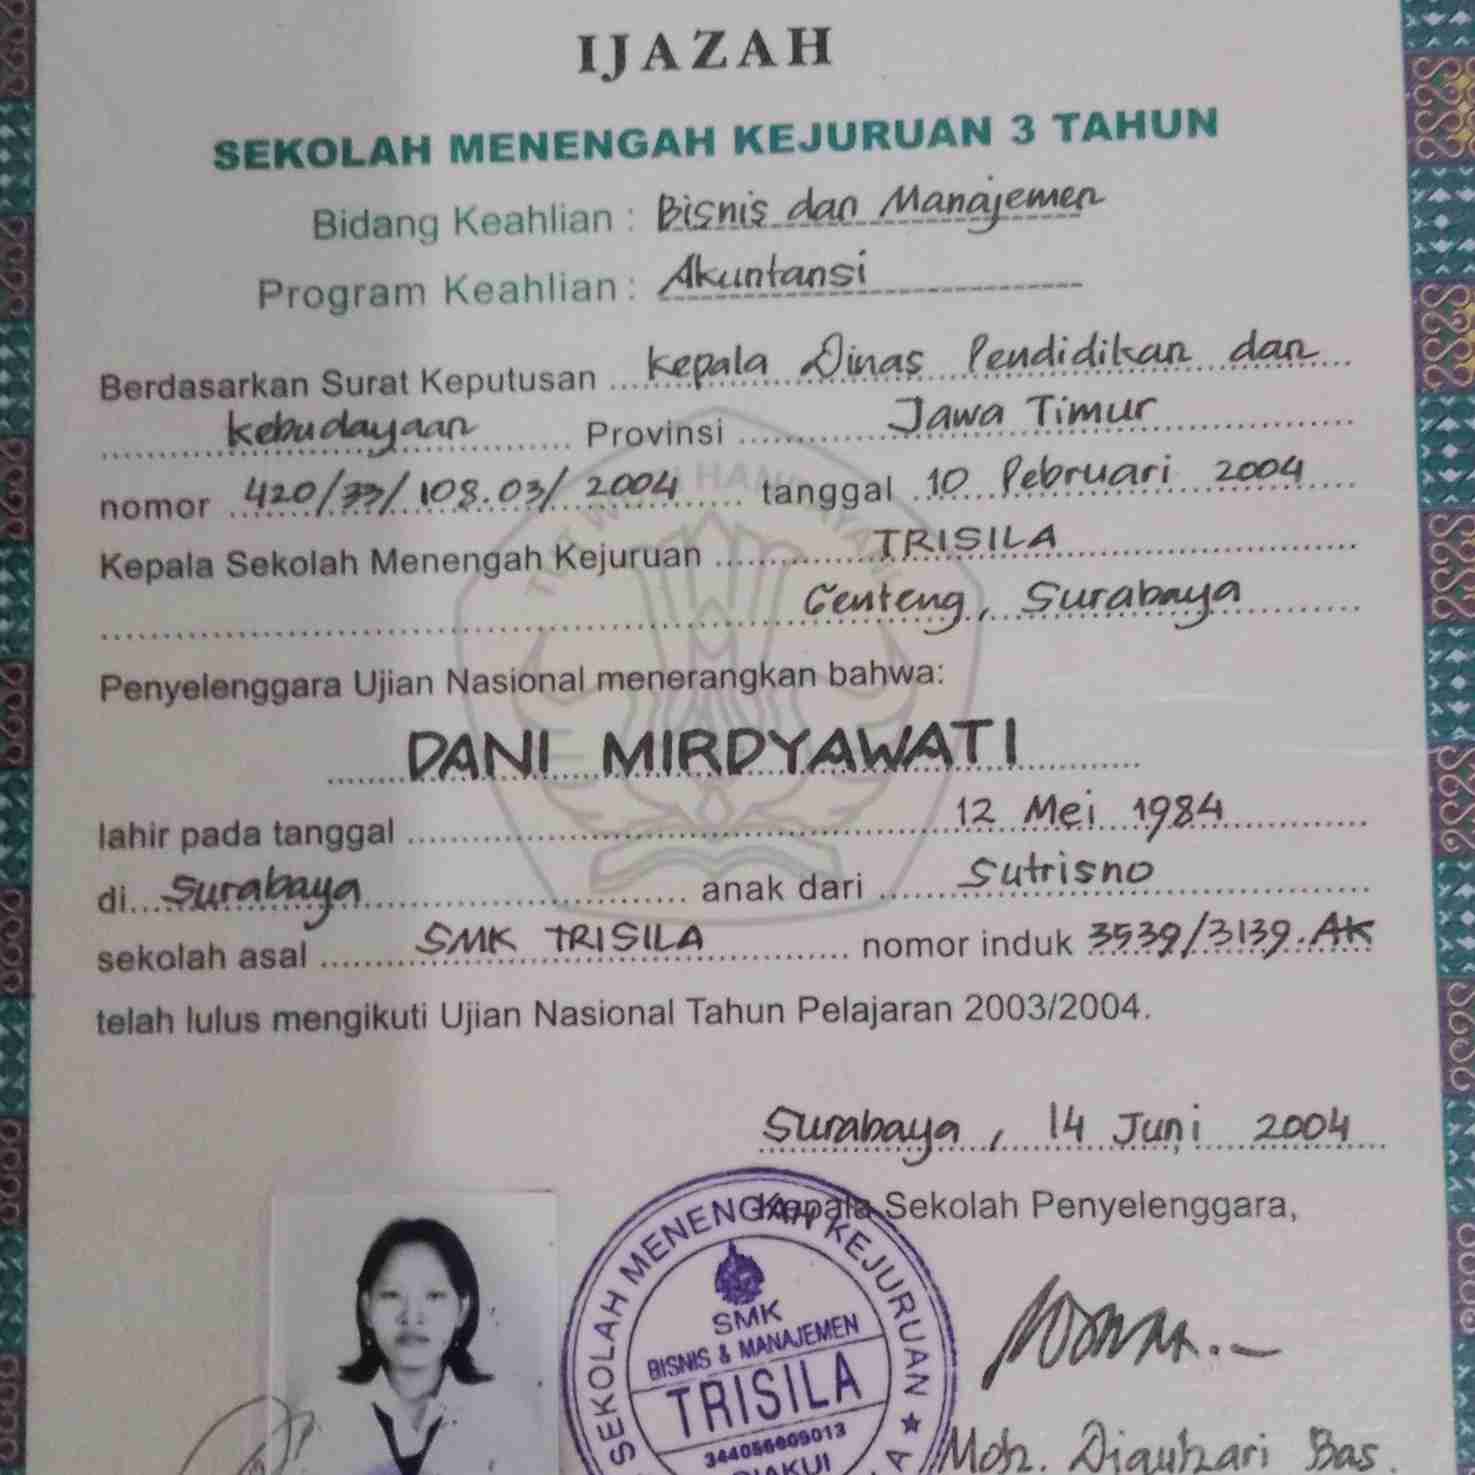 IJAZAH
SEKOLAH MENENGAH KEJURUAN 3 TAHUN
Bidang Keahlian : Bisnis dan Manajemen
Program Keahlian : Akuntansi
Berdasarkan Surat Keputusan kepala Dinas Pendidikan dan
kebudayaan Provinsi Jawa Timur
nomor 420/33/108.03/2004 tanggal 10 Pebruari 2004
Kepala Sekolah Menengah Kejuruan TRISILA
Genteng, Surabaya
Penyelenggara Ujian Nasional menerangkan bahwa:
DANI MIRDYAWATI
lahir pada tanggal 12 Mei 1984
di Surabaya anak dari Sutrisno
sekolah asal SMK TRISILA nomor induk 3539/3139.AK
telah lulus mengikuti Ujian Nasional Tahun Pelajaran 2003/2004.
Surabaya, 14 Juni 2004
Kepala Sekolah Penyelenggara,
SEKOLAH MENENGAH KEJURUAN
SMK
BISNIS & MANAJEMEN
TRISILA
DIAKUI
Moh. Djauhari Bas.